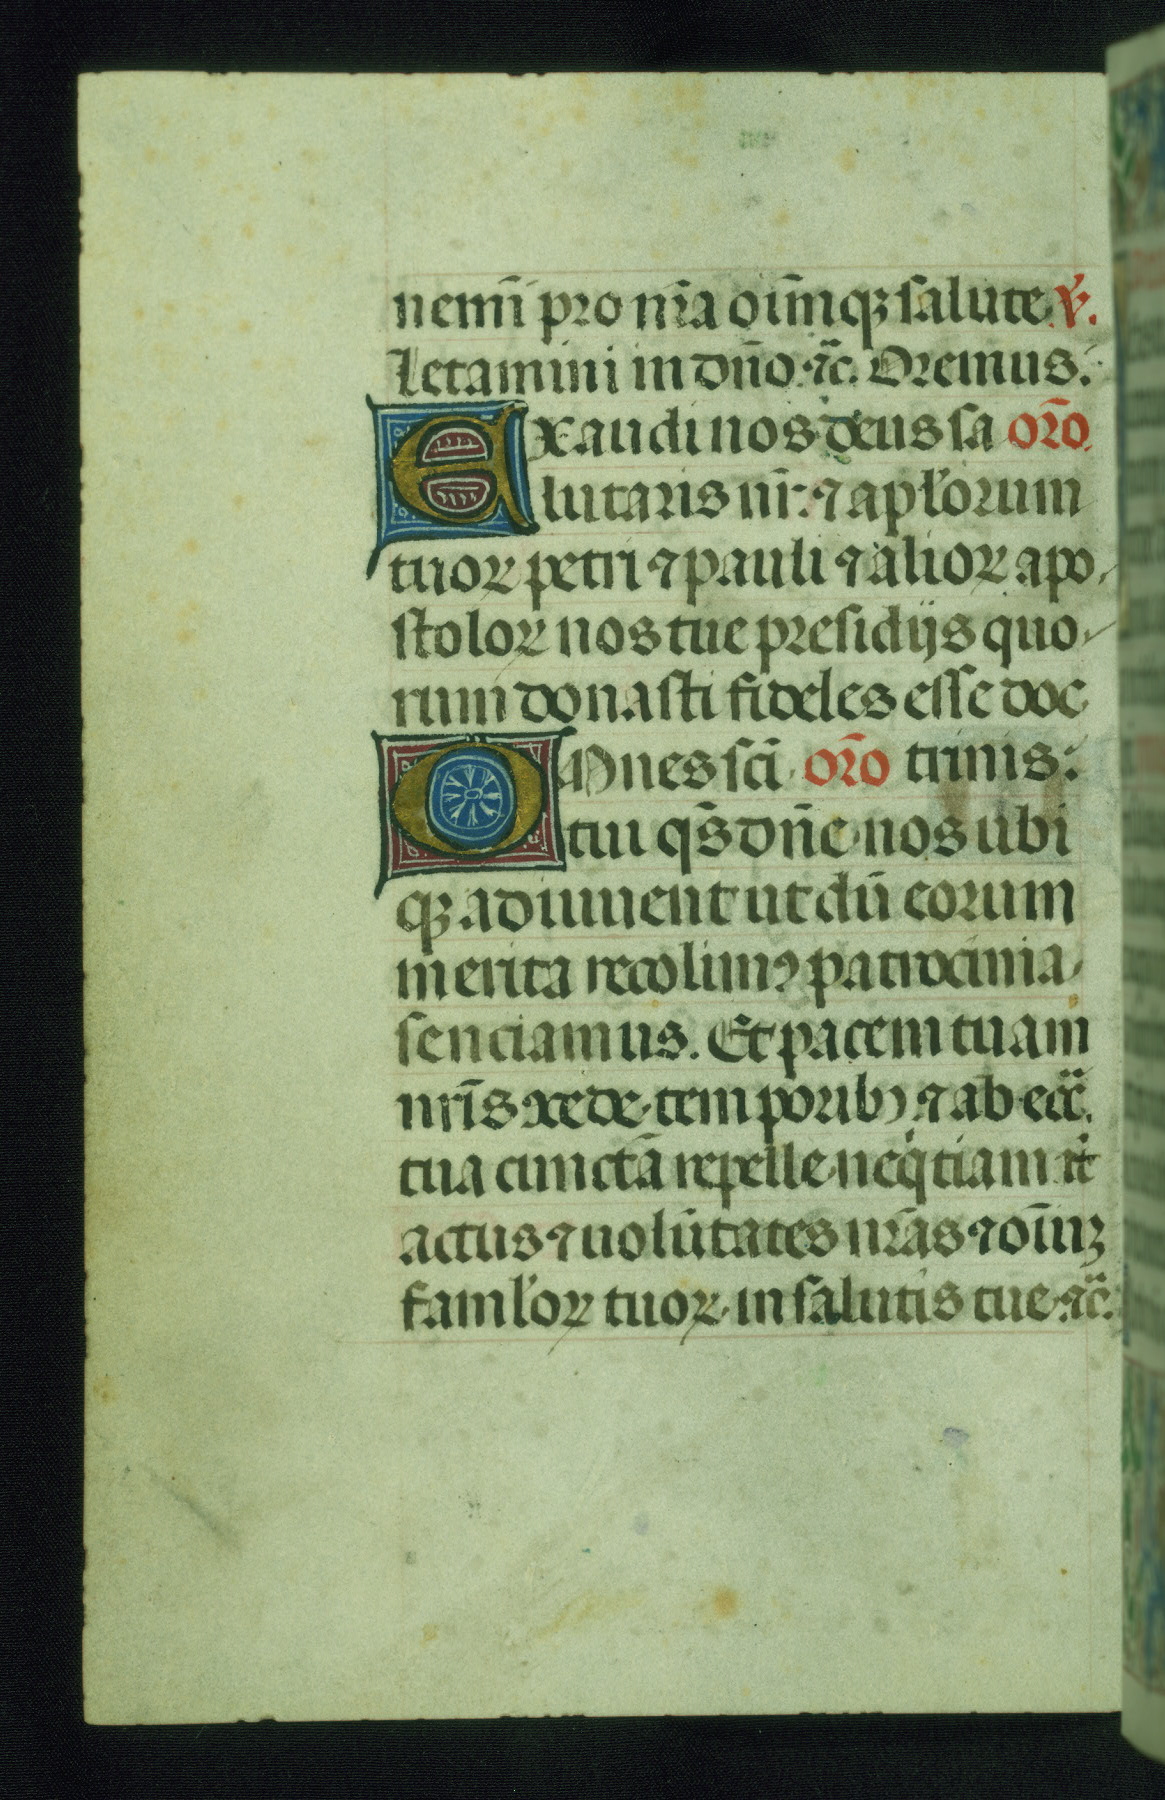 nemī pro nr̄a oīmqꝫ salute. ℣.
Letamini in dn̄o. ⁊c̄. Oremus.
Exaudi nos deus sa or̄o
lutaris nr̄. ⁊ apl̄orum
tuoꝝ petri ⁊ pauli ⁊ alioꝝ apo
stoloꝝ nos tue presidijs quo
rum donasti fideles esse doc
Omnes sc̄i or̄o trinis:
tui qs̄ dn̄e nos ubi
qꝫ adiuuent ut dū eorum
merita recolimꝰ patrocinia
senciamus. Et pacem tuam
nr̄is xede temporibꝰ ⁊ ab ecc̄
tua cunctā repelle neq̇tiam it̄
actus ⁊ uolūtates nr̄as ⁊ oīuꝫ
faml̄oꝝ tuoꝝ in salutis tue ⁊c̄.